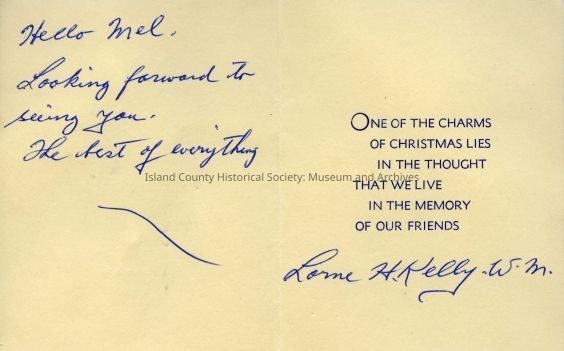 Hello Mel.
Looking forward to
seeing you.
The best of everything
Island County Historical Society: Museum and Archives
ONE OF THE CHARMS
OF CHRISTMAS LIES
IN THE THOUGHT
THAT WE LIVE
IN THE MEMORY
OF OUR FRIENDS
Lorne H. Kelly. W. M.